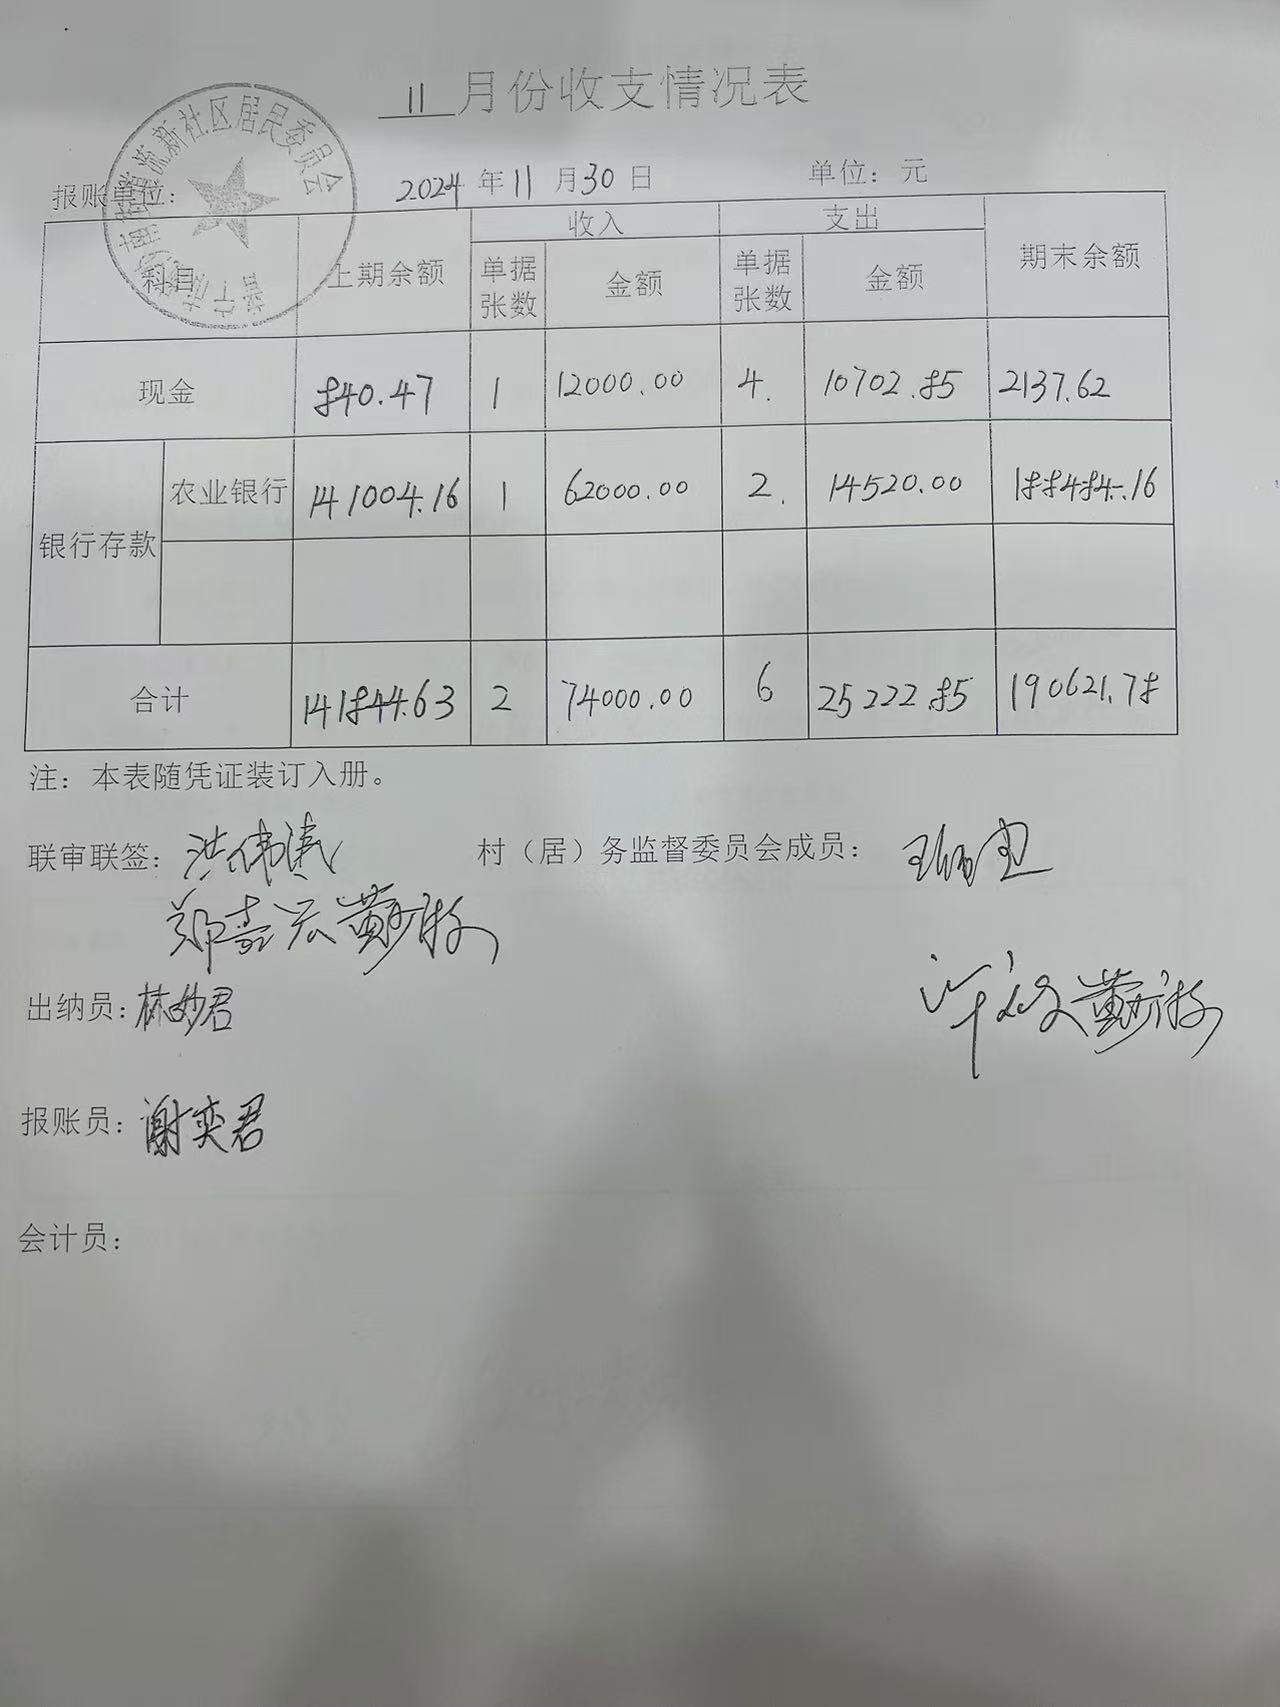 11月份收支情况表
流新社区居民委员会
报账单位： 2024年11月30日 单位：元
科目 上期余额 收入 支出 期末余额
单据张数 金额 单据张数 金额
现金 840.47 1 12000.00 4. 10702.85 2137.62
银行存款 农业银行 141004.16 1 62000.00 2. 14520.00 188484.16
合计 141844.63 2 74000.00 6 25222.85 190621.78
注：本表随凭证装订入册。
联审联签： 洪伟 村（居）务监督委员会成员：
郑嘉宏
出纳员：林妙君
报账员：谢奕君
会计员：